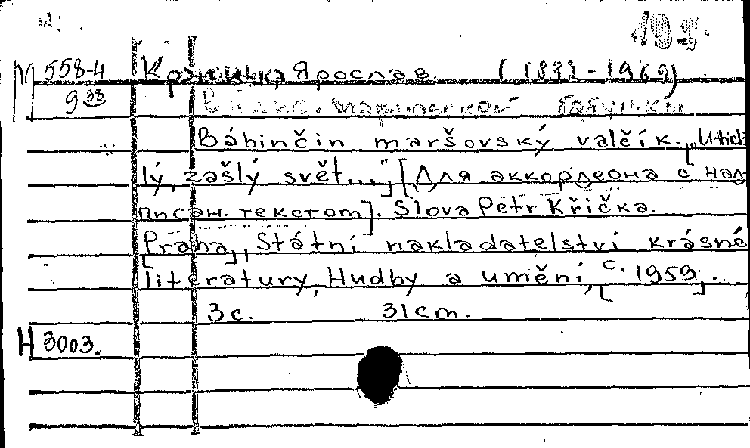 М 558-4
933
Ярослав (1882-1969)
Báhinčin maršovský valčík. „Utich
lý, zašlý svět..." [Для аккордеона с над
писан. текстом]. Slova Petr Křička.
[Praha], Státní nakladatelství krásné
literatury, Hudby a umění, [с. 1959].
3 с. 31 cm.
Н 3003.